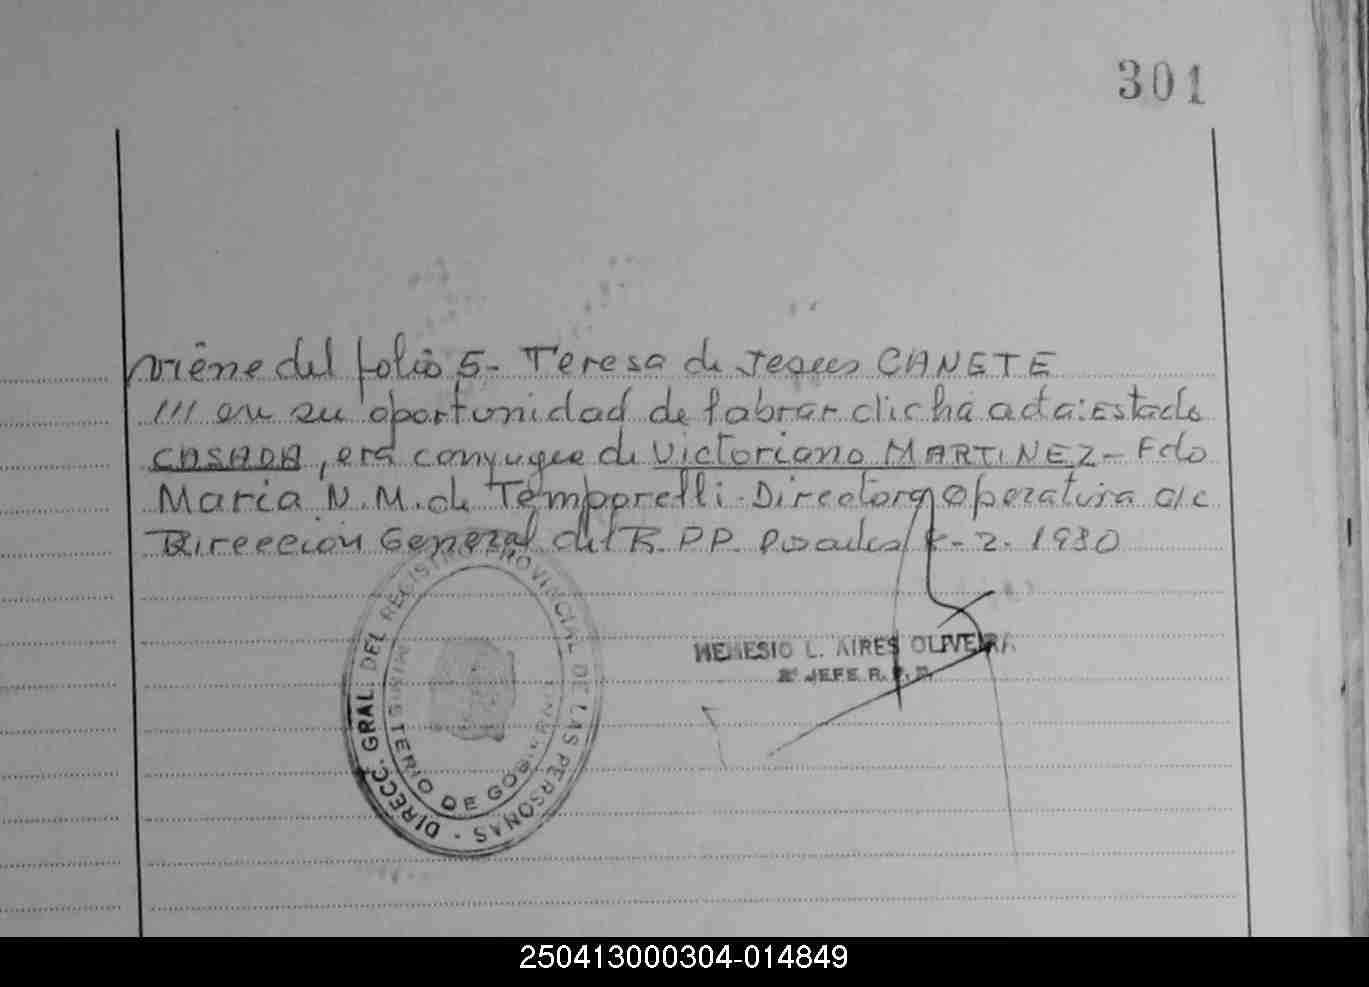 301
viene del folio 5- Teresa de Jesus CANETE
/// en su oportunidad de labrar dicha acta: Estado
CASADA, era conyugue de Victoriano MARTINEZ- Fdo
Maria N. M. de Temporelli. Directora Operativa a/c
Direccion General del R. P. P. Posadas, -2-1980
DIRECC. GRAL. DEL REGISTRO PROVINCIAL DE LAS PERSONAS
MINISTERIO DE GOBIERNO
NEMESIO L. AIRES OLIVEIRA
2º JEFE R. P. P.
250413000304-014849